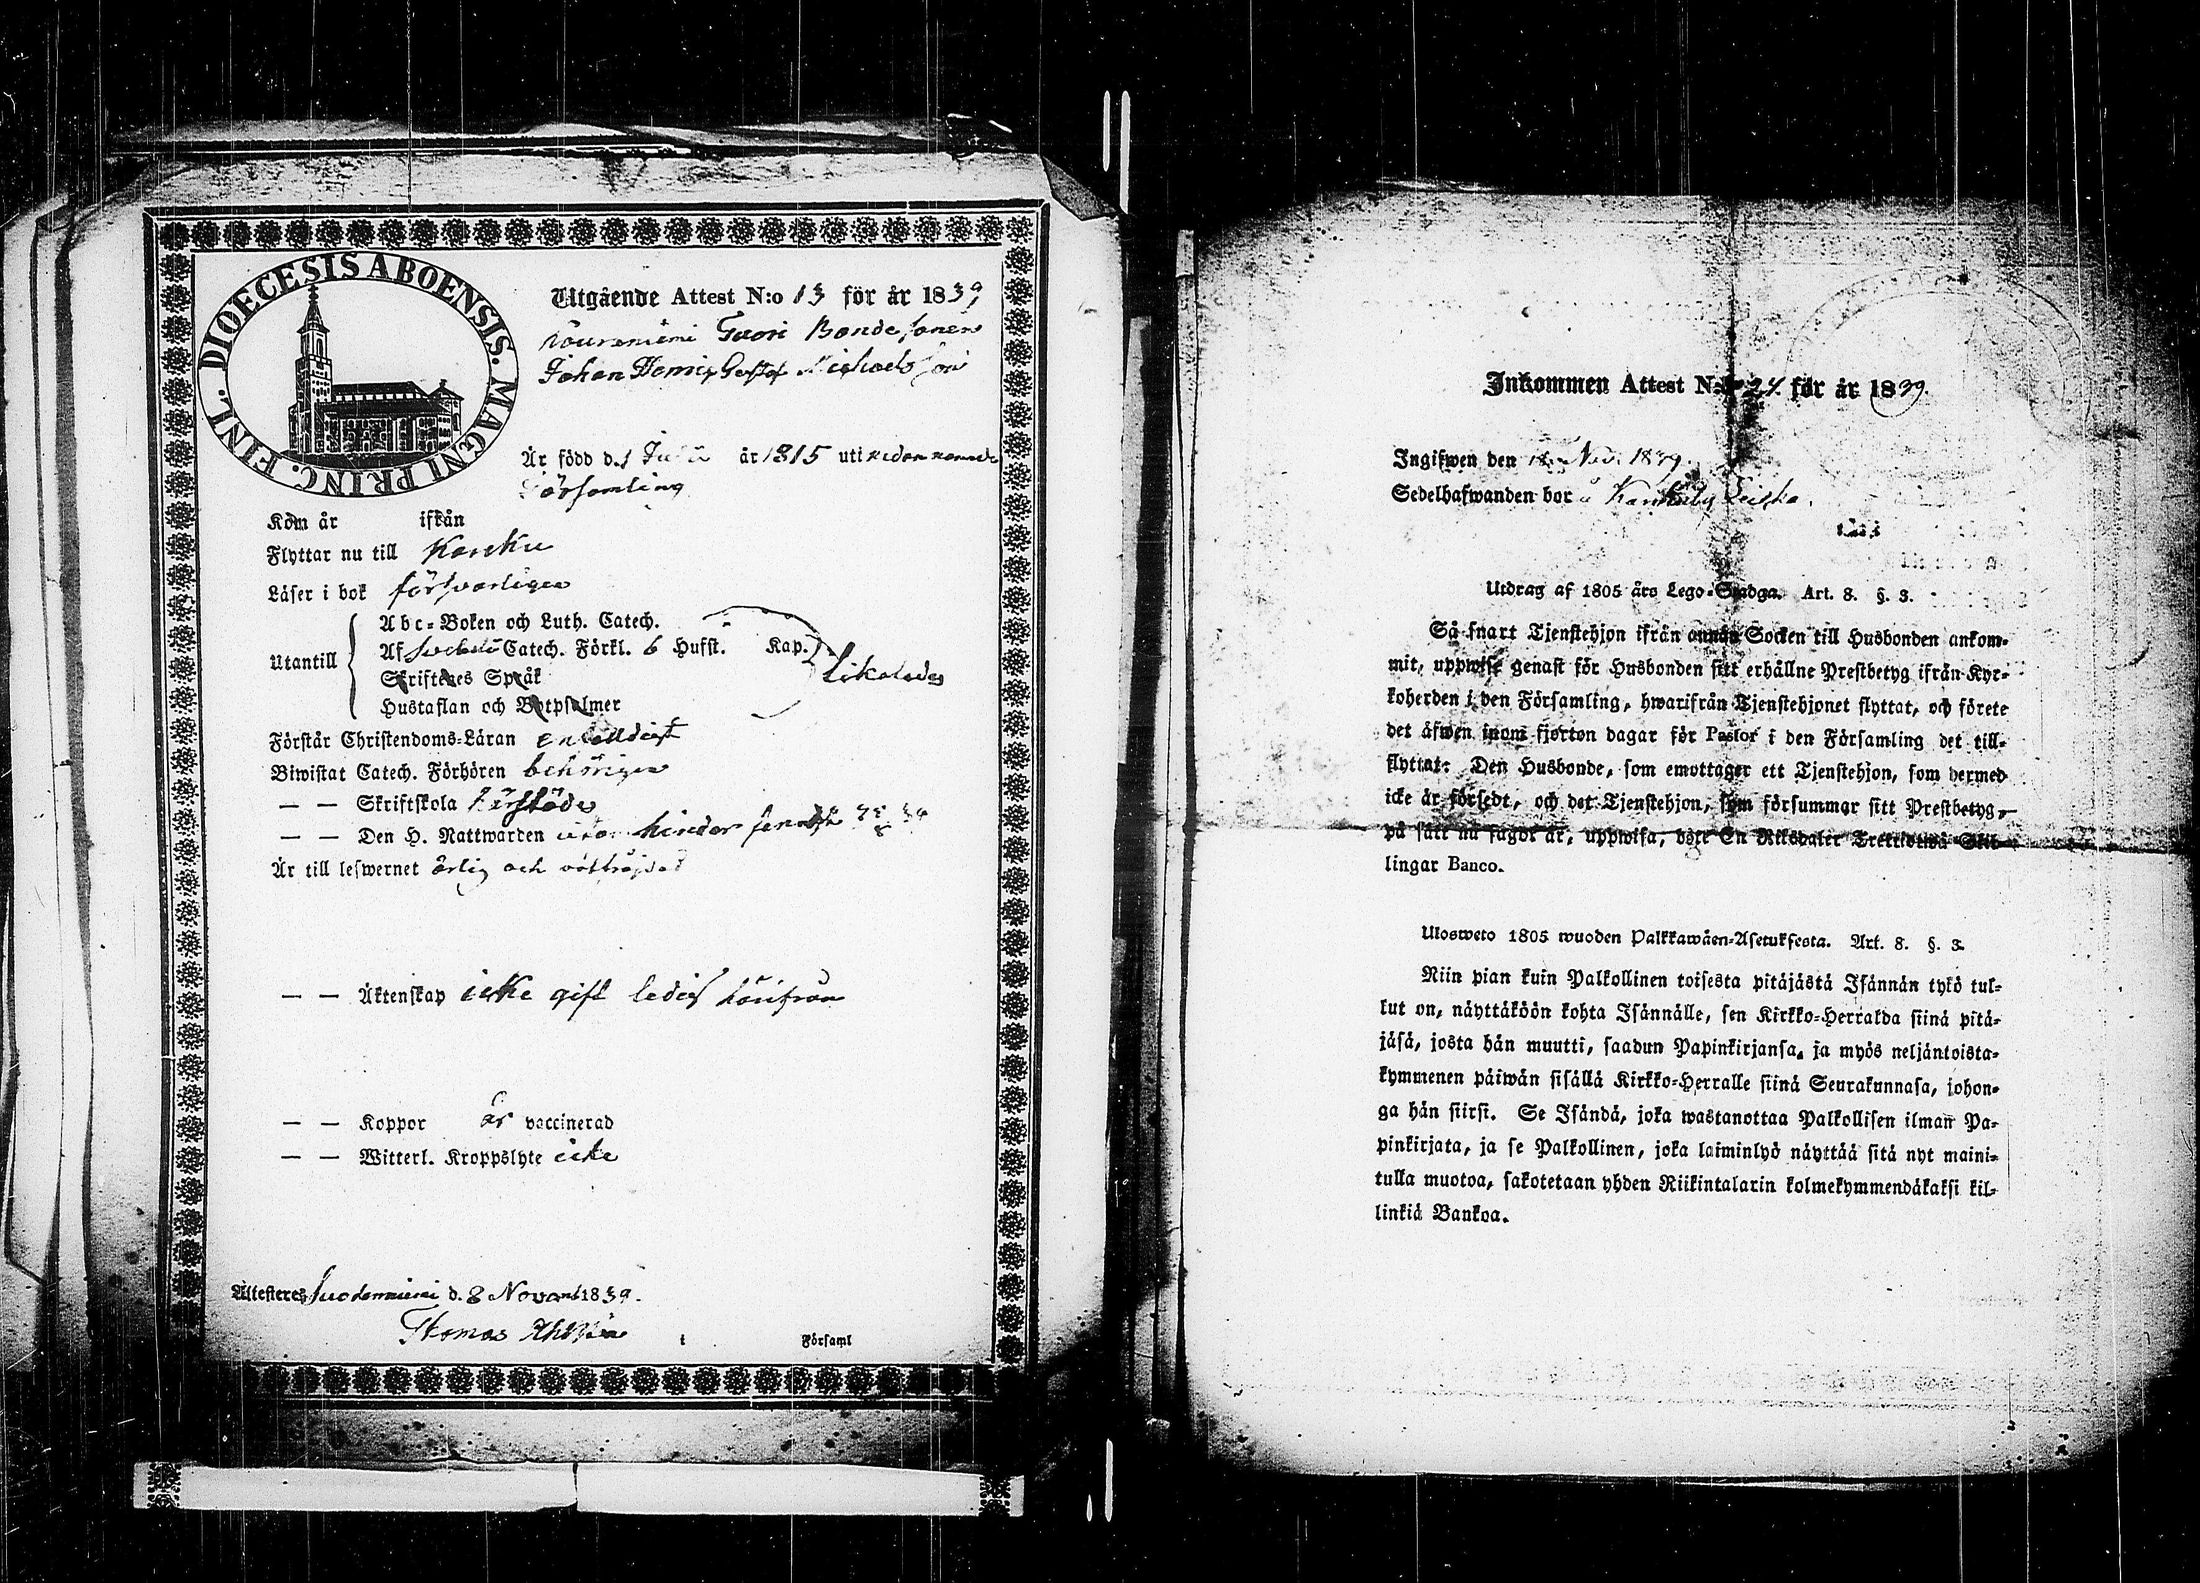 DIOECESIS ABOENSIS. MAGNI PRINC. FINL.
Utgående Attest N:o 13 för år 1839
Bondesonen
Johan Henric Gustaf Michaelsson
Är född d. 1 år 1815 uti nedannemde
Församling
Kom år ifrån
Flyttar nu till Karkku
Läser i bok försvarligen
Utantill
Abc-Boken och Luth. Catech.
Af Catech. Förkl. 6 Hufst. Kap.
Skriftenes Språk
Hustaflan och Botpsalmer
likaledes
Förstår Christendoms-Läran enfalldigt
Biwistat Catech. Förhören behörigen
— — Skriftskola
— — Den H. Nattwarden utan hinder
Är till lefwernet ärlig och
— — Äktenskap icke gift ledig härifrån
— — Koppor är vaccinerad
— — Witterl. Kroppslyte icke
Attesteres Suodenniemi d. 8 Novemb 1839.
Thomas
i Församl
Inkommen Attest N:o 24 för år 1839.
Ingifwen den 18 Nov. 1839.
Sedelhafwanden bor å
Utdrag af 1805 års Lego-Stadga. Art. 8. §. 3.
Så snart Tjenstehjon ifrån annan Socken till Husbonden ankom-
mit, uppwise genast för Husbonden sitt erhållne Prestbetyg ifrån Kyr-
koherden i den Församling, hwarifrån Tjenstehjonet flyttat, och förete
det äfwen inom fjorton dagar för Pastor i den Församling det till-
flyttat. Den Husbonde, som emottager ett Tjenstehjon, som dermed
icke är försedt, och det Tjenstehjon, som försummar sitt Prestbetyg,
på sätt nu sagdt är, uppwisa, böte En Riksdaler Trettiotwå Skil-
lingar Banco.
Ulosweto 1805 wuoden Palkkawäen-Asetuksesta. Art. 8. §. 3.
Niin pian kuin Palkollinen toisesta pitäjästä Isännän tykö tul-
lut on, näyttäköön kohta Isännälle, sen Kirkko-Herralda siinä pitä-
jäsä, josta hän muutti, saadun Papinkirjansa, ja myös neljäntoista-
kymmenen päiwän sisällä Kirkko-Herralle siinä Seurakunnasa, johon-
ga hän siirsi. Se Isändä, joka wastanottaa Palkollisen ilman Pa-
pinkirjata, ja se Palkollinen, joka laiminlyö näyttää sitä nyt maini-
tulla muotoa, sakotetaan yhden Riikintalarin kolmekymmendäkaksi kil-
linkiä Bankoa.